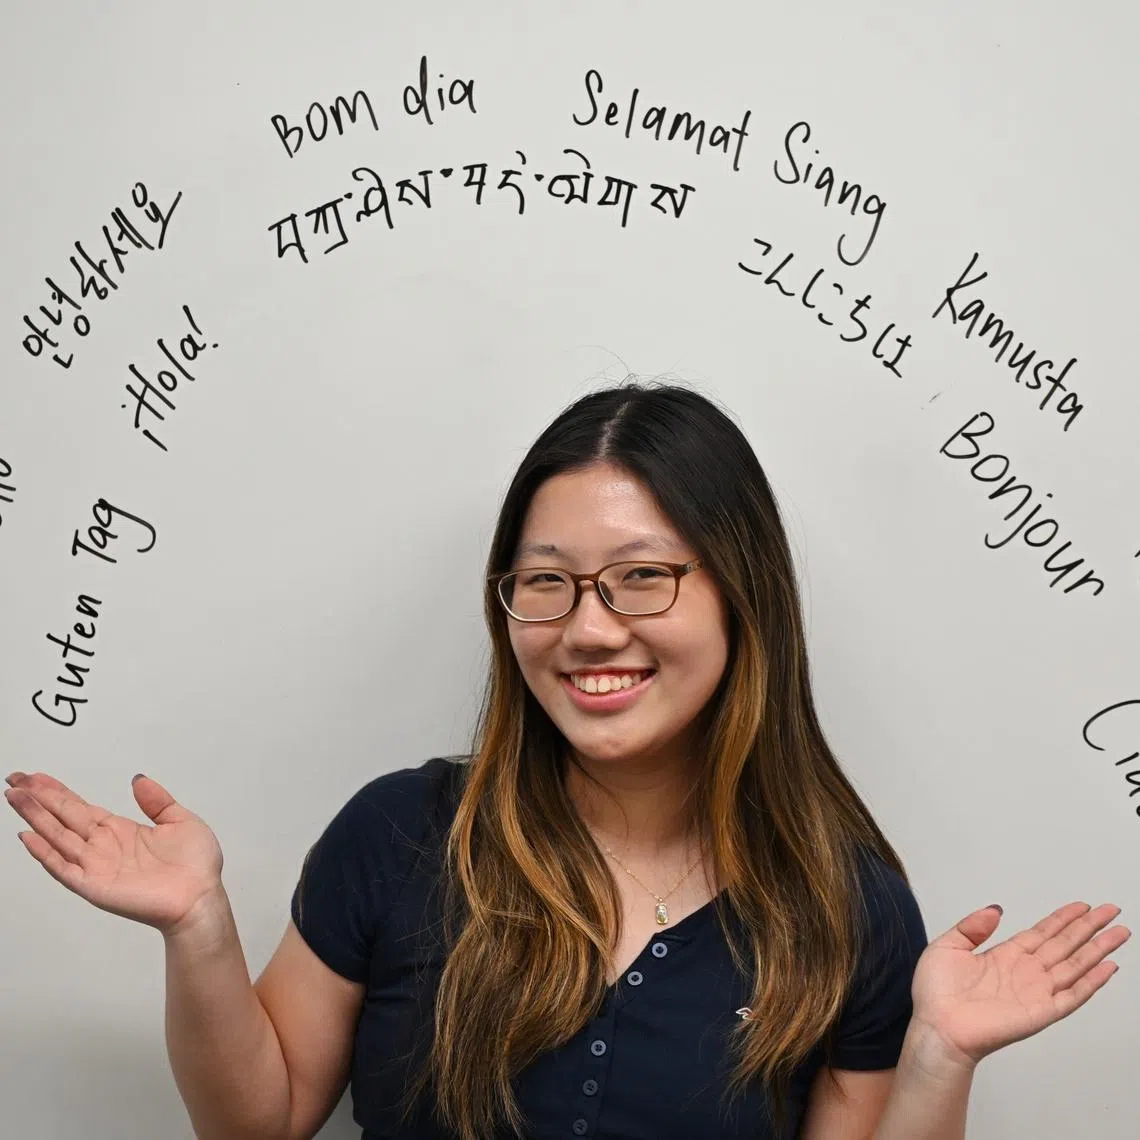 Bom dia
Selamat Siang
བཀྲ་ཤིས་བདེ་ལེགས
안녕하세요
こんにちは
Kamusta
¡Hola!
Bonjour
Guten Tag